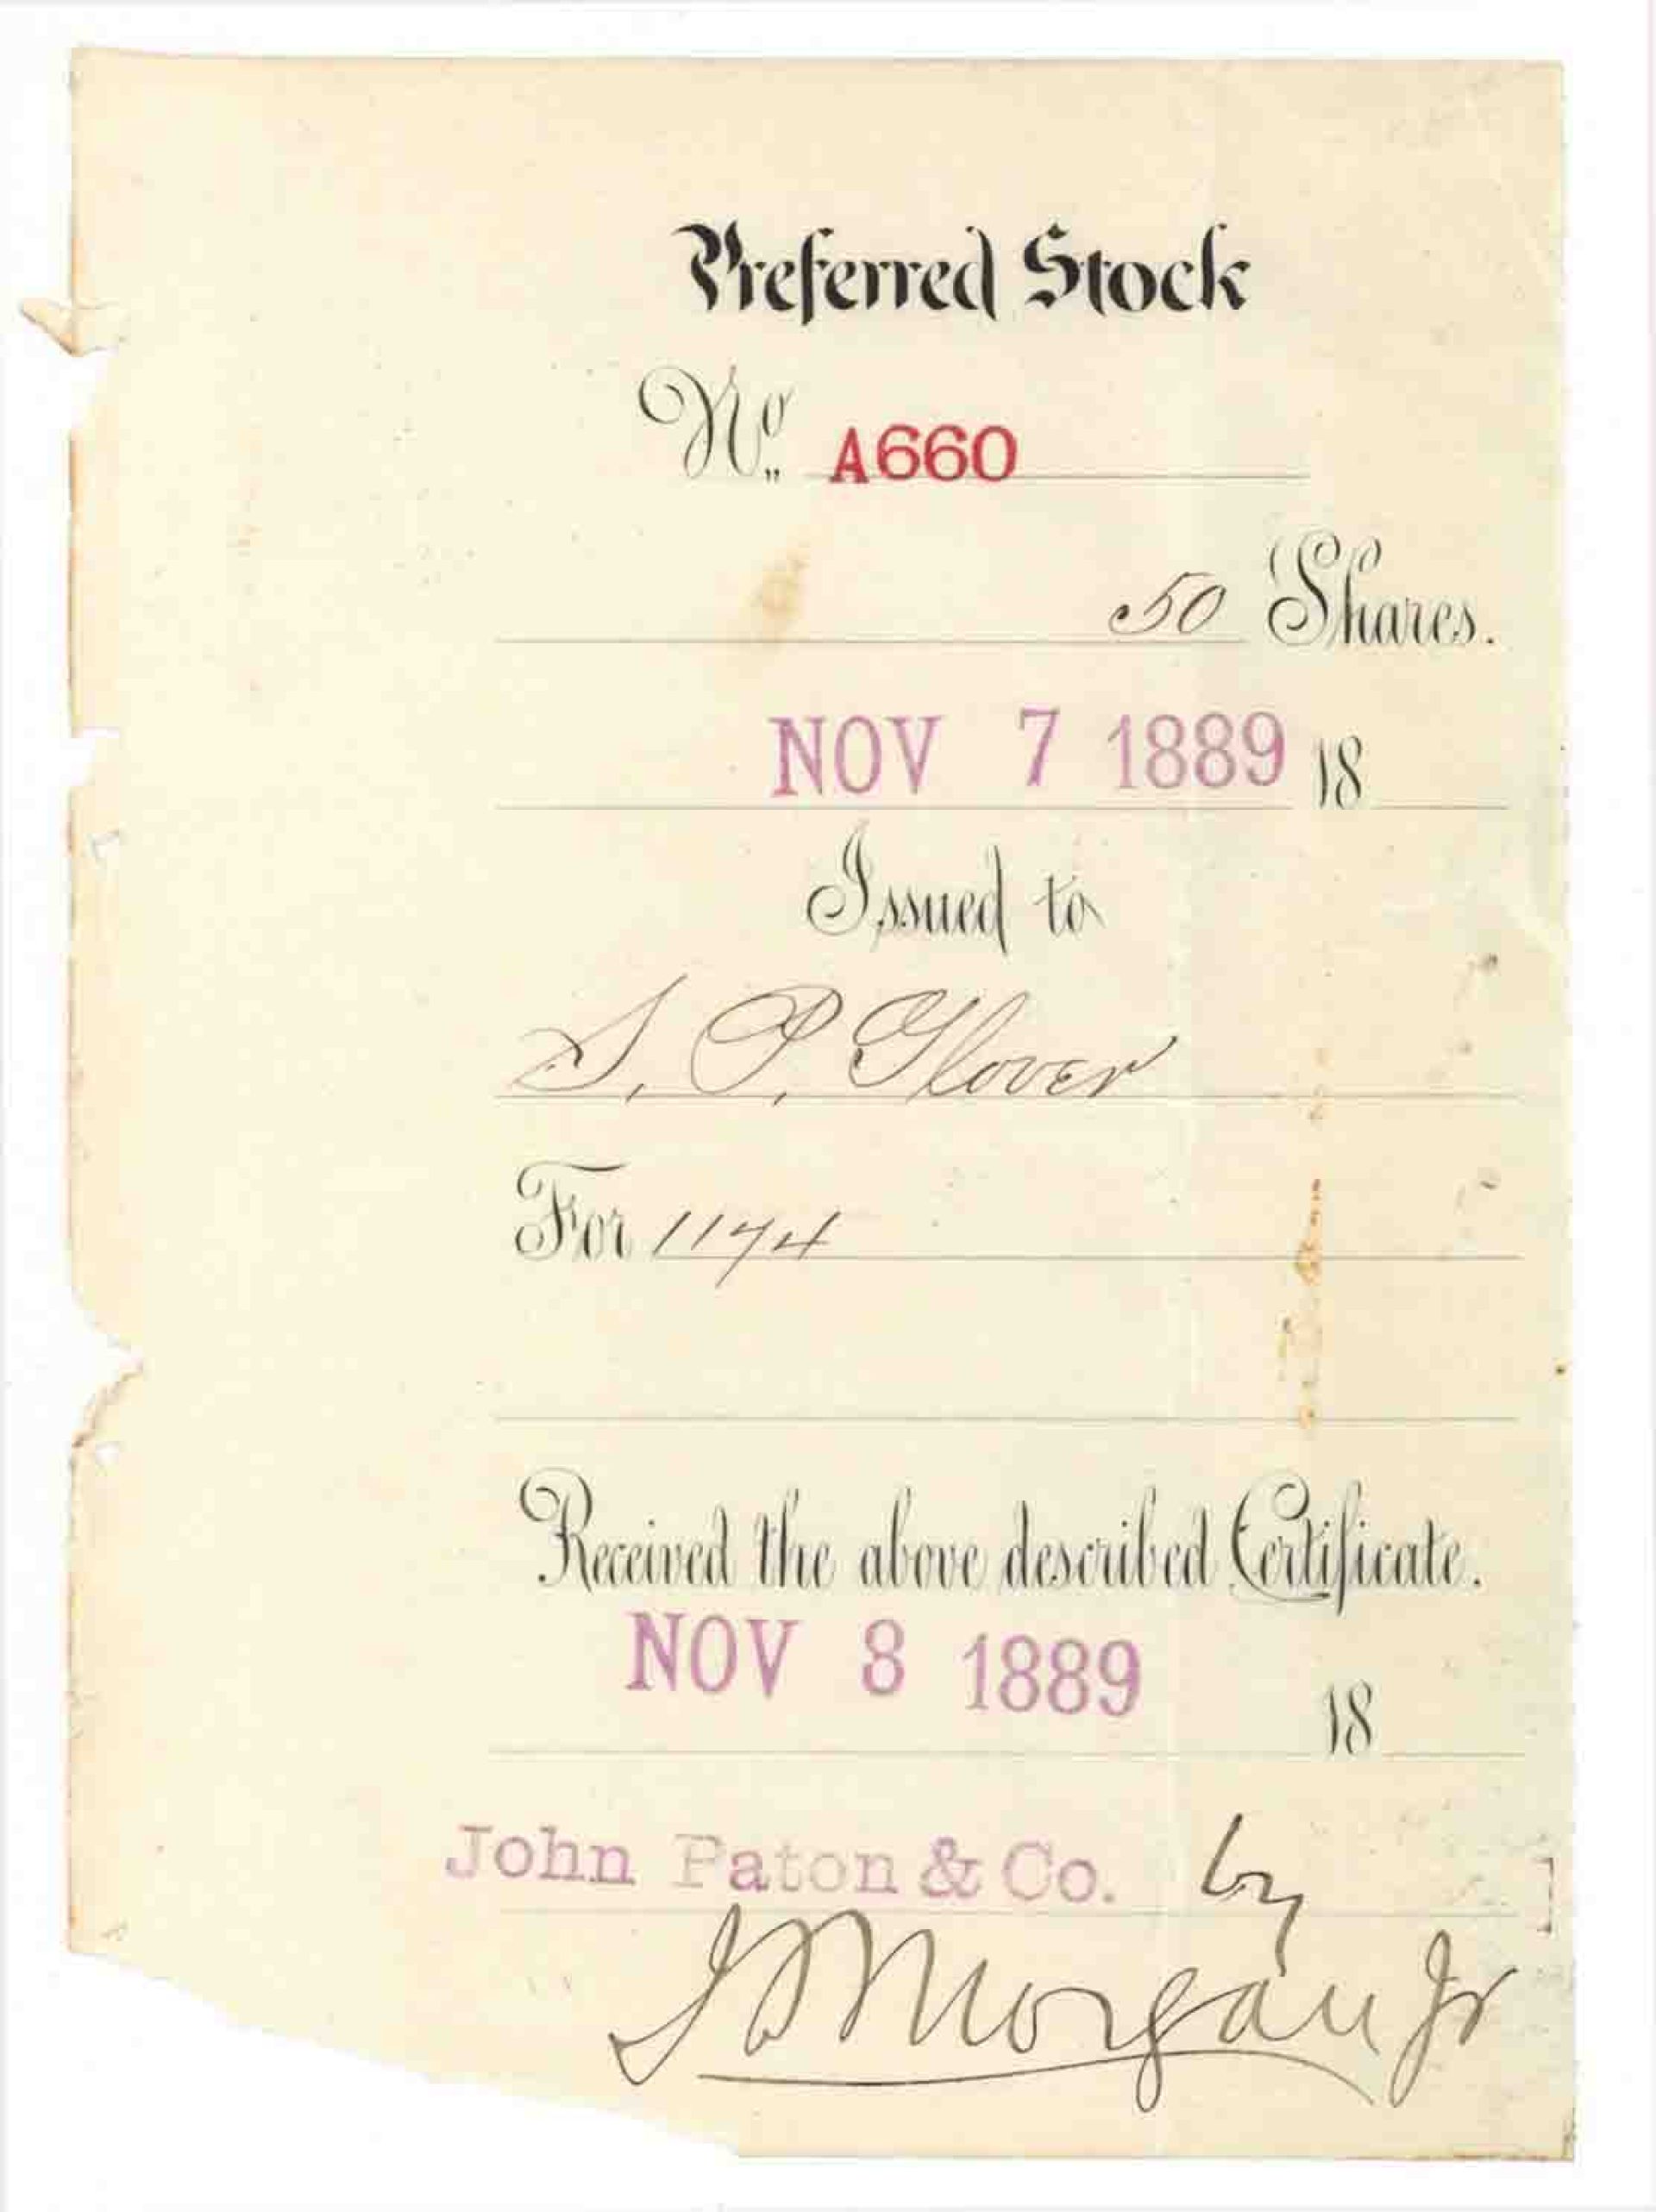 Preferred Stock
No. A660
50 Shares.
NOV 7 1889 18
Issued to
S. P. Glover
For 1174
Received the above described Certificate.
NOV 8 1889 18
John Paton & Co. by
Morgan Jr